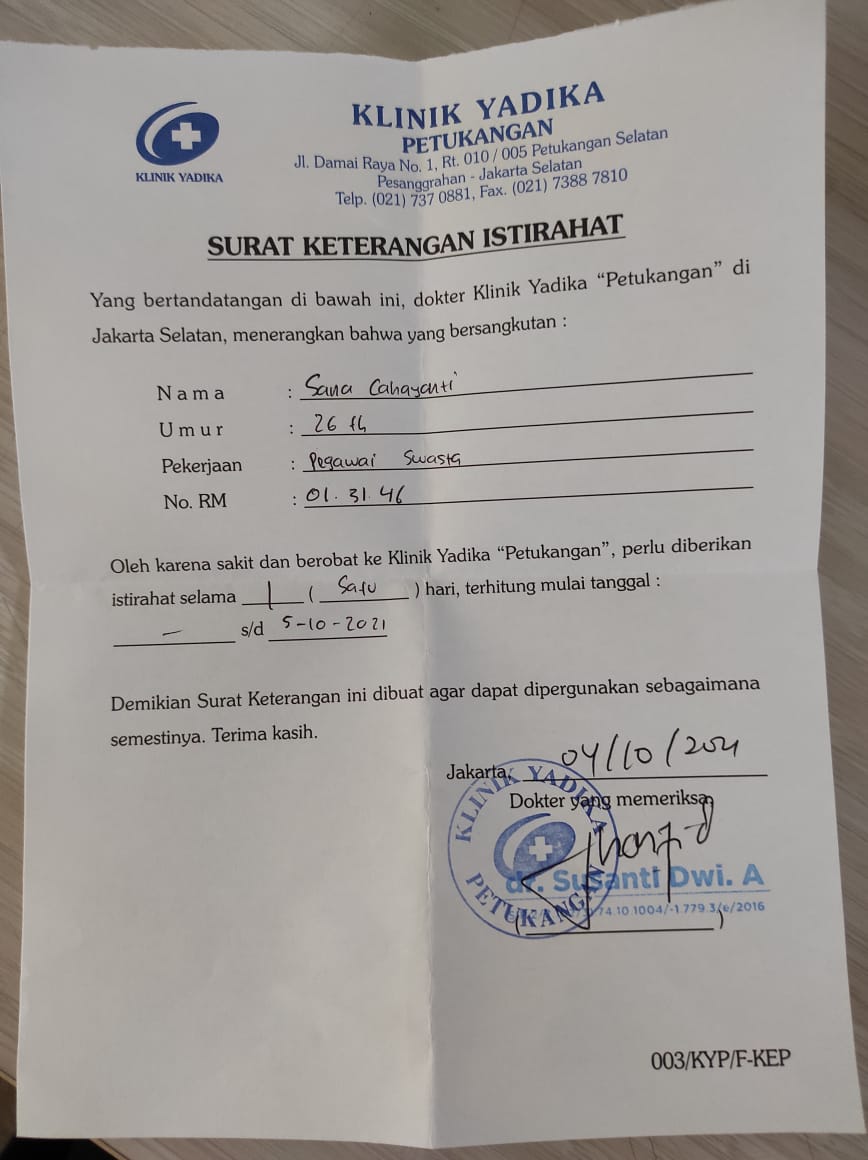 KLINIK YADIKA
KLINIK YADIKA
PETUKANGAN
Jl. Damai Raya No. 1, Rt. 010 / 005 Petukangan Selatan
Pesanggrahan - Jakarta Selatan
Telp. (021) 737 0881, Fax. (021) 7388 7810
SURAT KETERANGAN ISTIRAHAT
Yang bertandatangan di bawah ini, dokter Klinik Yadika “Petukangan” di
Jakarta Selatan, menerangkan bahwa yang bersangkutan :
Nama : Sana Cahayanti
Umur : 26 th
Pekerjaan : Pegawai Swasta
No. RM : 01.31.46
Oleh karena sakit dan berobat ke Klinik Yadika “Petukangan”, perlu diberikan
istirahat selama 1 ( Satu ) hari, terhitung mulai tanggal :
— s/d 5-10-2021
Demikian Surat Keterangan ini dibuat agar dapat dipergunakan sebagaimana
semestinya. Terima kasih.
Jakarta, 04/10/2021
Dokter yang memeriksa,
KLINIK YADIKA
PETUKANGAN
dr. Susanti Dwi. A
74.10.1004/-1.779.3/e/2016
( )
003/KYP/F-KEP